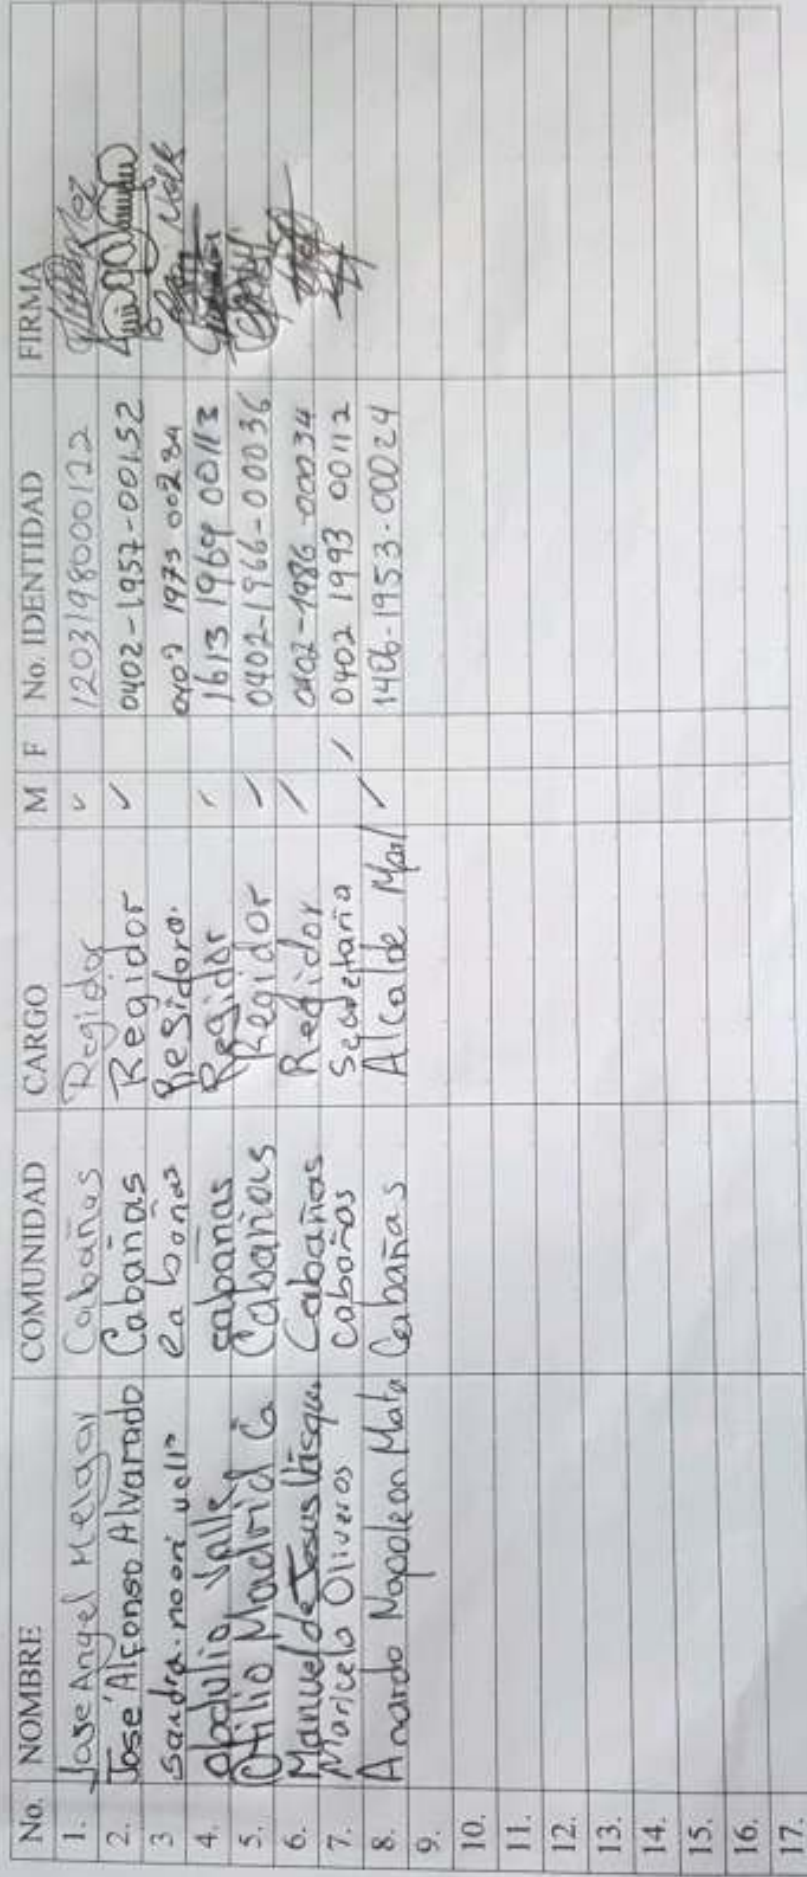 No. NOMBRE COMUNIDAD CARGO M F No. IDENTIDAD FIRMA
1. Jose Angel Melgar Cabañas Regidor ✓ 1203198000122
2. José Alfonso Alvarado Cabañas Regidor ✓ 0402-1957-00152
3 Sandra Regidora. 1973 00234
4. Obdulio Valle cabañas Regidor / 1613 1969 00113
5. Otilio Madrid C Cabañas Regidor / 0402-1966-00036
6. Manuel de Jesus Cabañas Regidor / 0402-1986-00034
7. Maricela Oliveros cabañas Secretaria / 0402 1993 00112
8. Napoleon Mata Cabañas Alcalde / 1406-1953-00024
9.
10.
11.
12.
13.
14.
15.
16.
17.